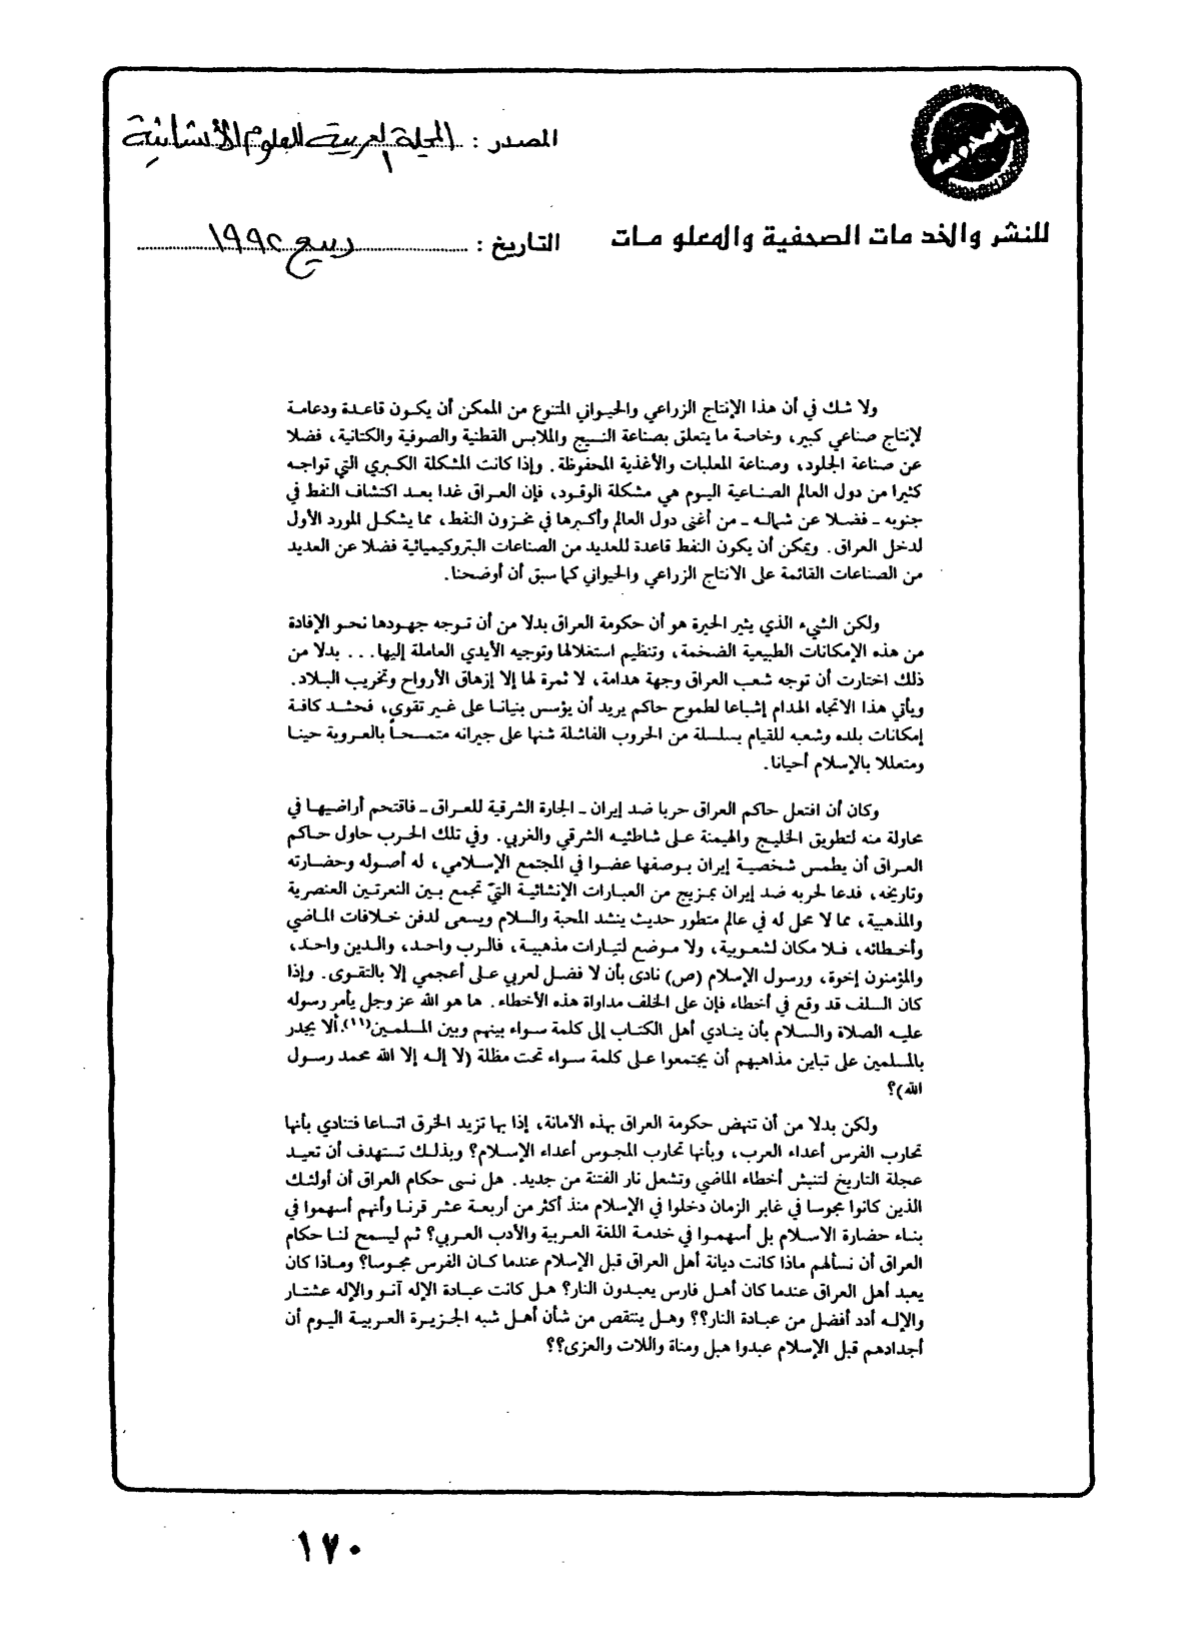 المصدر : المجلة العربية للعلوم الإنسانية
للنشر والخدمات الصحفية والمعلومات
التاريخ : ربيع ١٩٩٢
ولا شك في أن هذا الإنتاج الزراعي والحيواني المتنوع من الممكن أن يكون قاعدة ودعامة
لإنتاج صناعي كبير، وخاصة ما يتعلق بصناعة النسيج والملابس القطنية والصوفية والكتانية، فضلا
عن صناعة الجلود، وصناعة المعلبات والأغذية المحفوظة. وإذا كانت المشكلة الكبري التي تواجه
كثيرا من دول العالم الصناعية اليوم هي مشكلة الوقود، فإن العراق غدا بعد اكتشاف النفط في
جنوبه ـ فضلا عن شماله ـ من أغنى دول العالم وأكبرها في مخزون النفط، مما يشكل المورد الأول
لدخل العراق. ويمكن أن يكون النفط قاعدة للعديد من الصناعات البتروكيميائية فضلا عن العديد
من الصناعات القائمة على الانتاج الزراعي والحيواني كما سبق أن أوضحنا.
ولكن الشيء الذي يثير الحيرة هو أن حكومة العراق بدلا من أن توجه جهودها نحو الإفادة
من هذه الإمكانات الطبيعية الضخمة، وتنظيم استغلالها وتوجيه الأيدي العاملة إليها... بدلا من
ذلك اختارت أن توجه شعب العراق وجهة هدامة، لا ثمرة لها إلا إزهاق الأرواح وتخريب البلاد.
ويأتي هذا الاتجاه الهدام إشباعا لطموح حاكم يريد أن يؤسس بنيانا على غير تقوى، فحشد كافة
إمكانات بلده وشعبه للقيام بسلسلة من الحروب الفاشلة شنها على جيرانه متمسحاً بالعروبة حينا
ومتعللا بالإسلام أحيانا.
وكان أن افتعل حاكم العراق حربا ضد إيران ـ الجارة الشرقية للعراق ـ فاقتحم أراضيها في
محاولة منه لتطويق الخليج والهيمنة على شاطئيه الشرقي والغربي. وفي تلك الحرب حاول حاكم
العراق أن يطمس شخصية إيران بوصفها عضوا في المجتمع الإسلامي، له أصوله وحضارته
وتاريخه، فدعا لحربه ضد إيران بمزيج من العبارات الإنشائية التيّ تجمع بين النعرتين العنصرية
والمذهبية، مما لا محل له في عالم متطور حديث ينشد المحبة والسلام ويسعى لدفن خلافات الماضي
وأخطائه، فلا مكان لشعوبية، ولا موضع لتيارات مذهبية، فالرب واحد، والدين واحد،
والمؤمنون إخوة، ورسول الإسلام (ص) نادى بأن لا فضل لعربي على أعجمي إلا بالتقوى. وإذا
كان السلف قد وقع في أخطاء فإن على الخلف مداواة هذه الأخطاء. ها هو الله عز وجل يأمر رسوله
عليه الصلاة والسلام بأن ينادي أهل الكتاب إلى كلمة سواء بينهم وبين المسلمين(١١). ألا يجدر
بالمسلمين على تباين مذاهبهم أن يجتمعوا على كلمة سواء تحت مظلة (لا إله إلا الله محمد رسول
الله)؟
ولكن بدلا من أن تنهض حكومة العراق بهذه الأمانة، إذا بها تزيد الخرق اتساعا فتنادي بأنها
تحارب الفرس أعداء العرب، وبأنها تحارب المجوس أعداء الإسلام؟ وبذلك تستهدف أن تعيد
عجلة التاريخ لتنبش أخطاء الماضي وتشعل نار الفتنة من جديد. هل نسى حكام العراق أن أولئك
الذين كانوا مجوسا في غابر الزمان دخلوا في الإسلام منذ أكثر من أربعة عشر قرنا وأنهم أسهموا في
بناء حضارة الاسلام بل أسهموا في خدمة اللغة العربية والأدب العربي؟ ثم ليسمح لنا حكام
العراق أن نسألهم ماذا كانت ديانة أهل العراق قبل الإسلام عندما كان الفرس مجوسا؟ وماذا كان
يعبد أهل العراق عندما كان أهل فارس يعبدون النار؟ هل كانت عبادة الإله آنو والإله عشتار
والإله أدد أفضل من عبادة النار؟؟ وهل ينتقص من شأن أهل شبه الجزيرة العربية اليوم أن
أجدادهم قبل الإسلام عبدوا هبل ومناة واللات والعزى؟؟
١٧٠